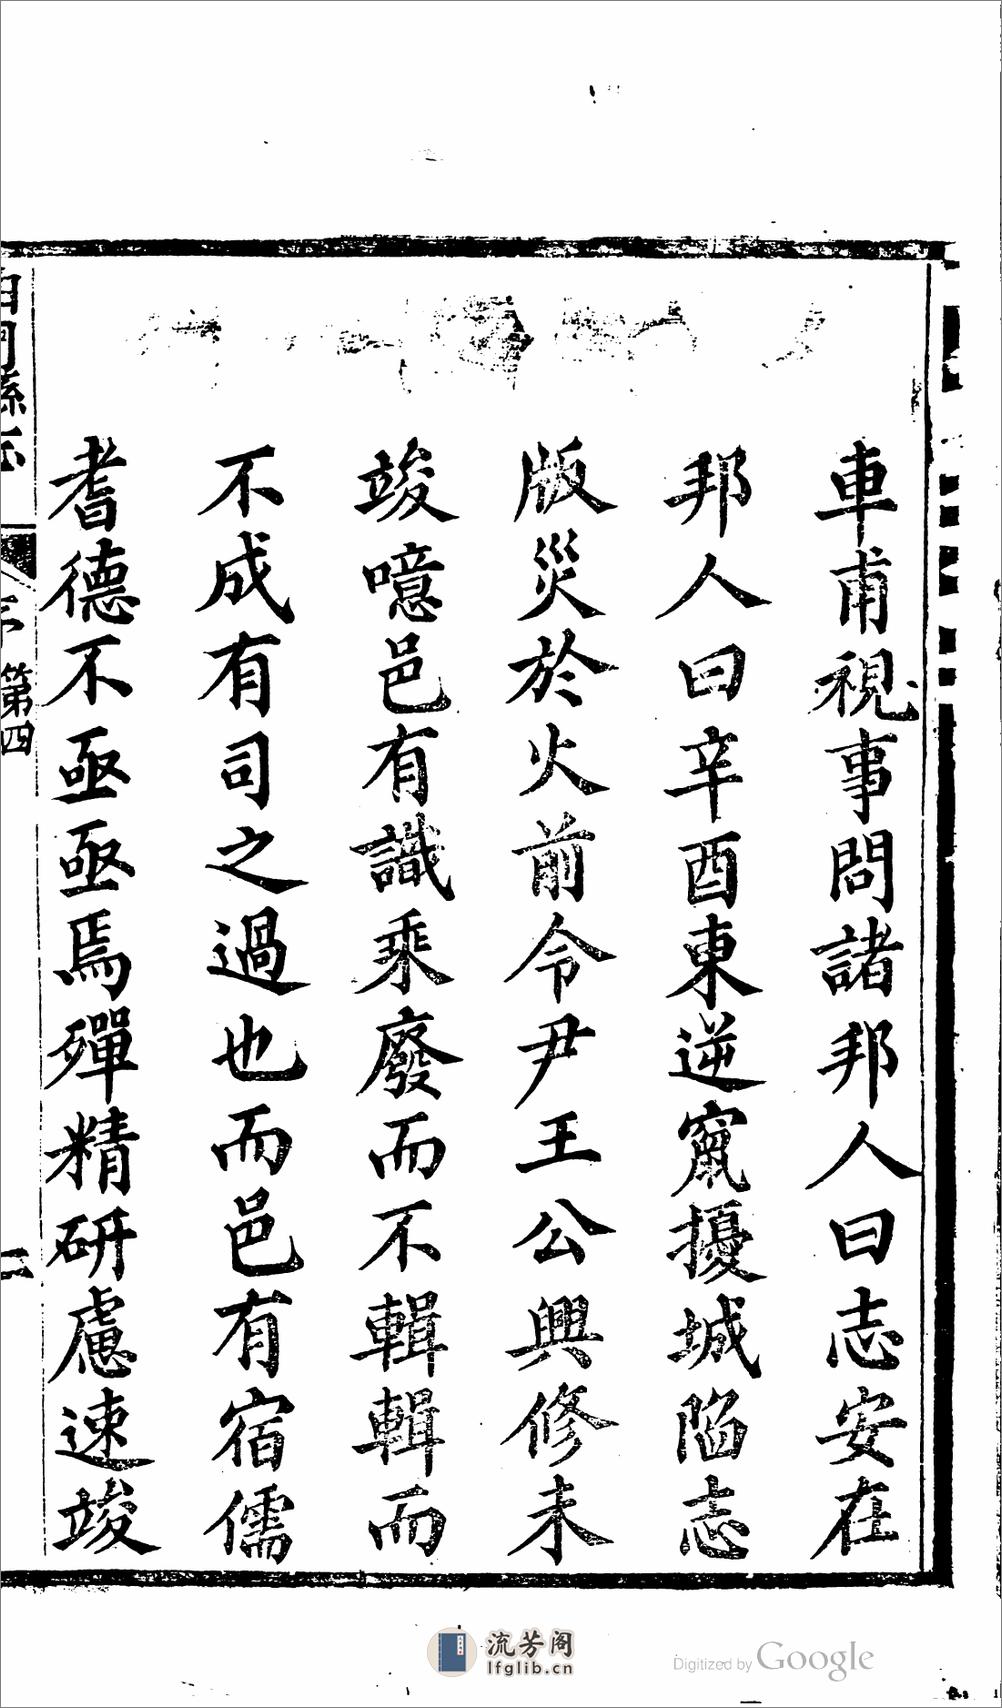 車甫視事問諸邦人曰志安在
邦人曰辛酉東逆竄擾城陷志
版災於火前令尹王公興修未
竣噫邑有識乘廢而不輯輯而
不成有司之過也而邑有宿儒
耆德不亟亟焉殫精研慮速竣
縣志
序
第四
二
流芳阁
lfglib.cn
Digitized by Google